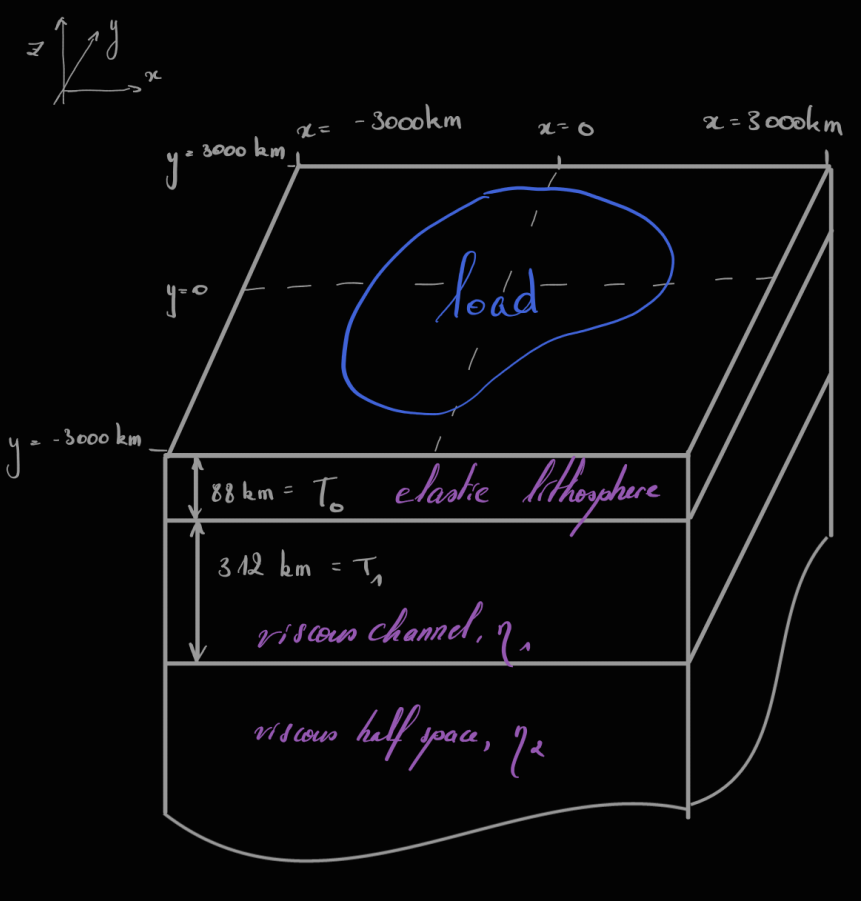 z y x
x = -3000km x=0 x = 3000km
y = 3000 km
load
y=0
y = -3000 km
88 km = T₀ elastic lithosphere
312 km = T₁
viscous channel, η₁
viscous half space, η₂